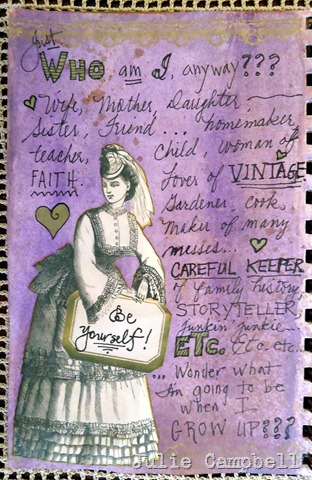 Just
WHO am I, anyway???
Wife, Mother, Daughter,
Sister, Friend... homemaker,
teacher, Child, woman of
FAITH. Lover of VINTAGE.
Gardener, cook,
Maker of many
messes...
CAREFUL KEEPER
of family history,
STORYTELLER,
Junkin Junkie...
ETC. Etc, etc..
... Wonder what
I'm going to be
when I
GROW UP???
Be
Yourself!
Julie Campbell